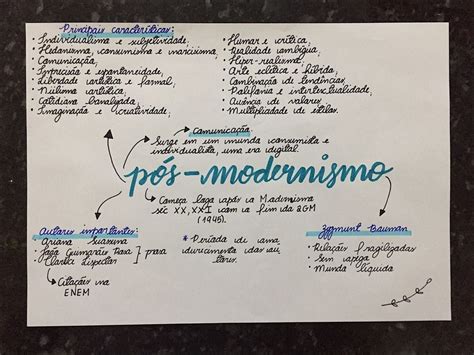 Principais características:
• Individualismo e subjetividade,
• Hedonismo, consumismo e narcisismo,
• Comunicação,
• Imprecisão e espontaneidade,
• Liberdade artística e formal,
• Niilismo artístico,
• Cotidiano banalizado,
• Imaginação e criatividade;
• Humor e crítica,
• Realidade ambígua,
• Hiper-realismo,
• Arte eclética e híbrida,
• Combinação de tendências,
• Polifonia e intertextualidade,
• Ausência de valores,
• Multiplicidade de estilos.
comunicação
Surge em um mundo consumista e
individualista, uma era digital.
pós-modernismo
Começa logo após o Modernismo
séc XX, XXI com o fim da 2GM
(1945).
Autores importantes:
• Ariana Suassuna
• João Guimarães Rosa
• Clarice Lispector
} para
Citações no
ENEM
* Período de
Zygmunt Bauman
• Relações fragilizadas
• Sem apego
• Mundo líquido